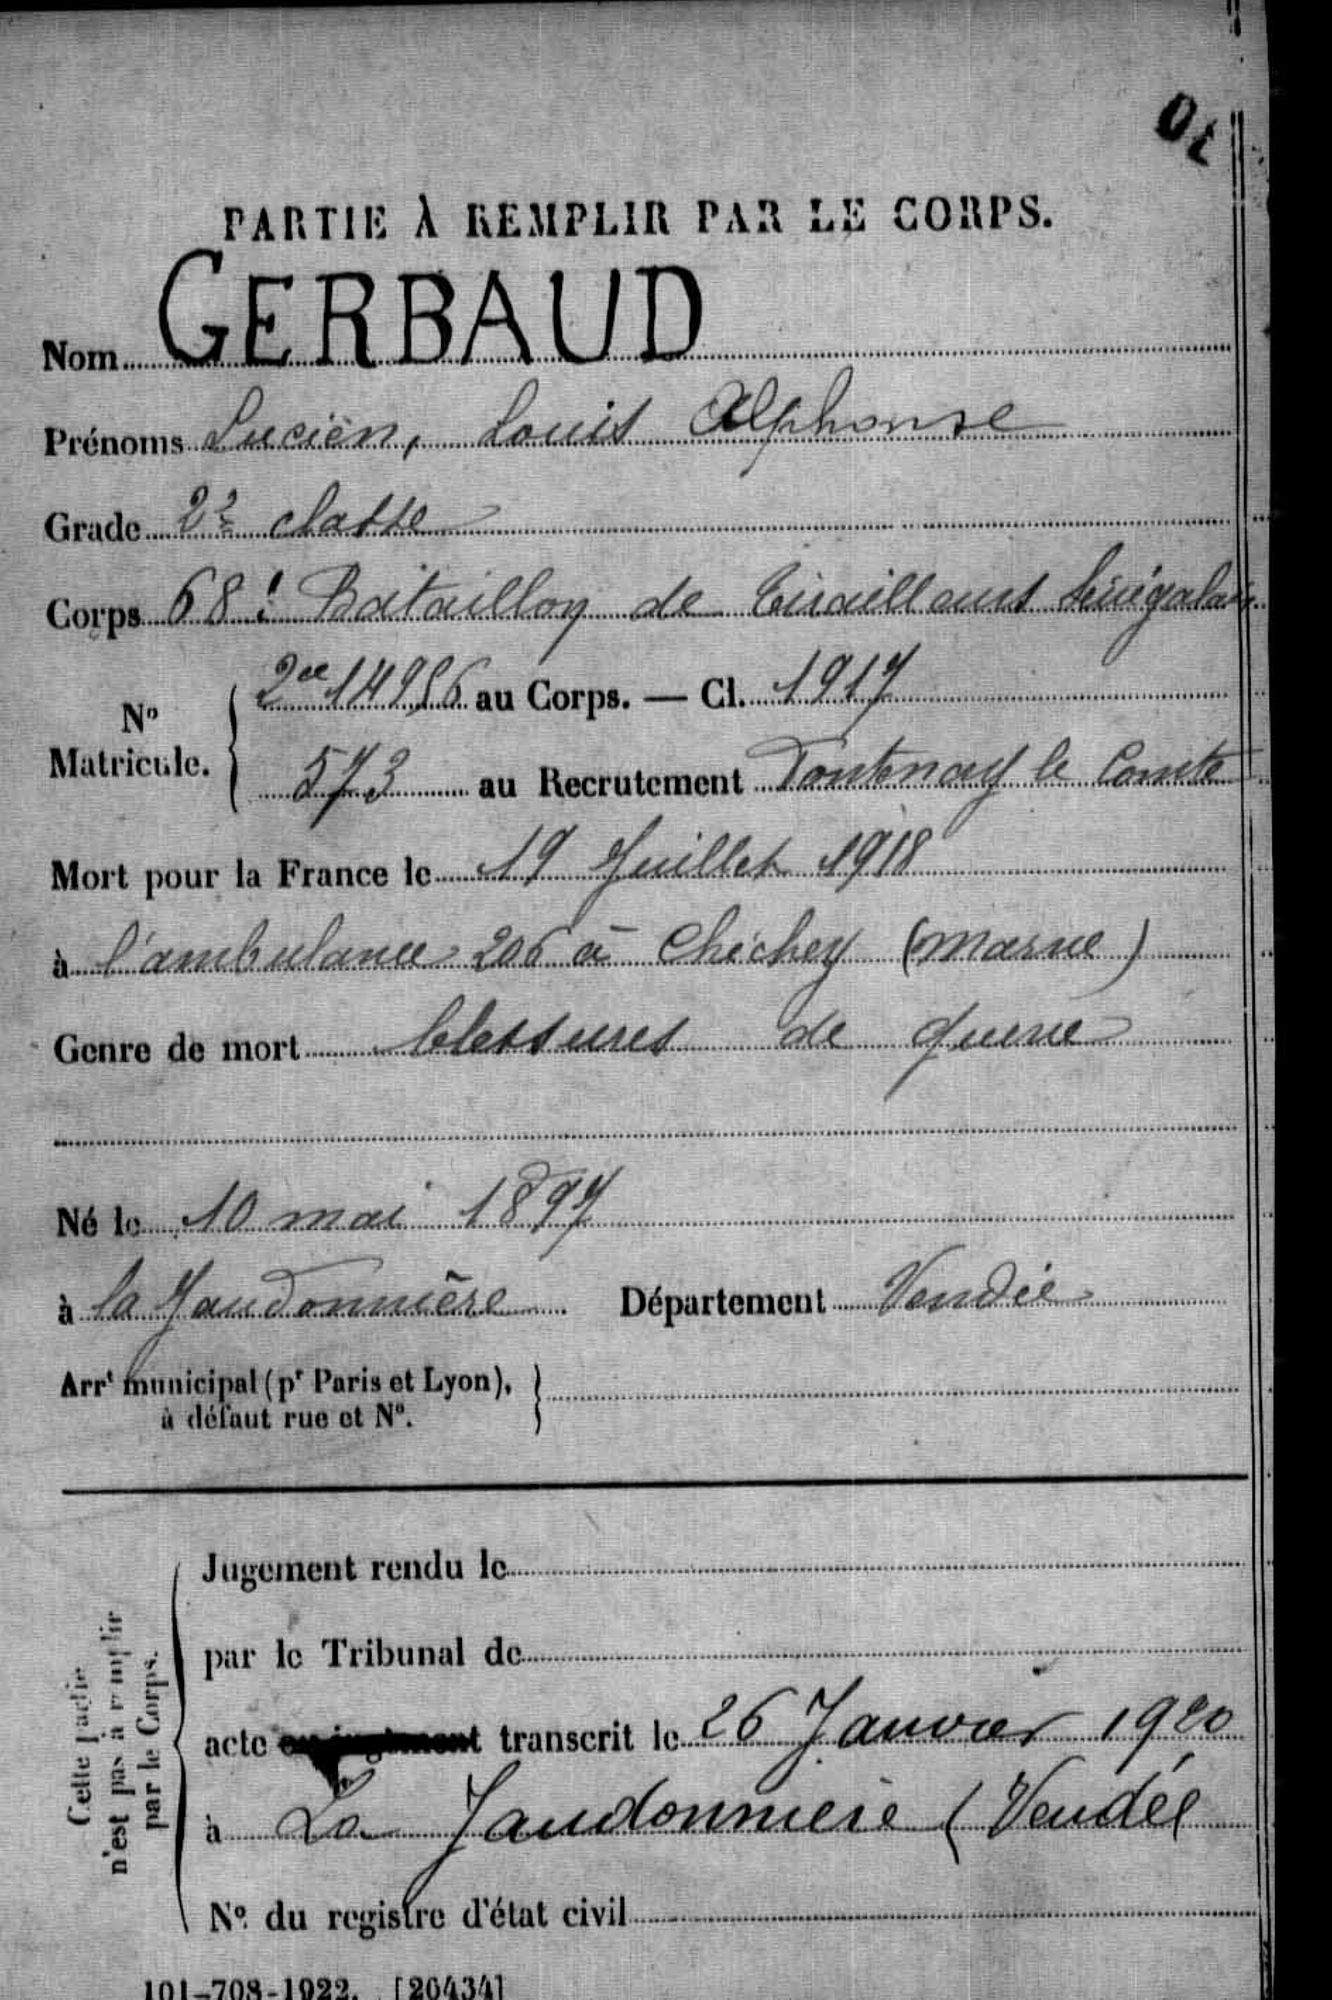 PARTIE À REMPLIR PAR LE CORPS.
Nom GERBAUD
Prénoms Lucien, Louis Alphonse
Grade 2e classe
Corps 68e Bataillon de Tirailleurs Sénégalais
No Matricule. { au Corps. — Cl. 1917
573 au Recrutement Fontenay le Comte
Mort pour la France le 19 Juillet 1918
à l'ambulance 206 à Chichey (Marne)
Genre de mort blessures de guerre
Né le 10 mai 1897
à la Jaudonnière Département Vendée
Arrt municipal (pr Paris et Lyon), }
à défaut rue et No.
Cette partie
n'est pas à remplir
par le Corps.
Jugement rendu le
par le Tribunal de
acte ou jugement transcrit le 26 Janvier 1920
à La Jaudonnière (Vendée
No. du registre d'état civil
101-708-1922. [26434]